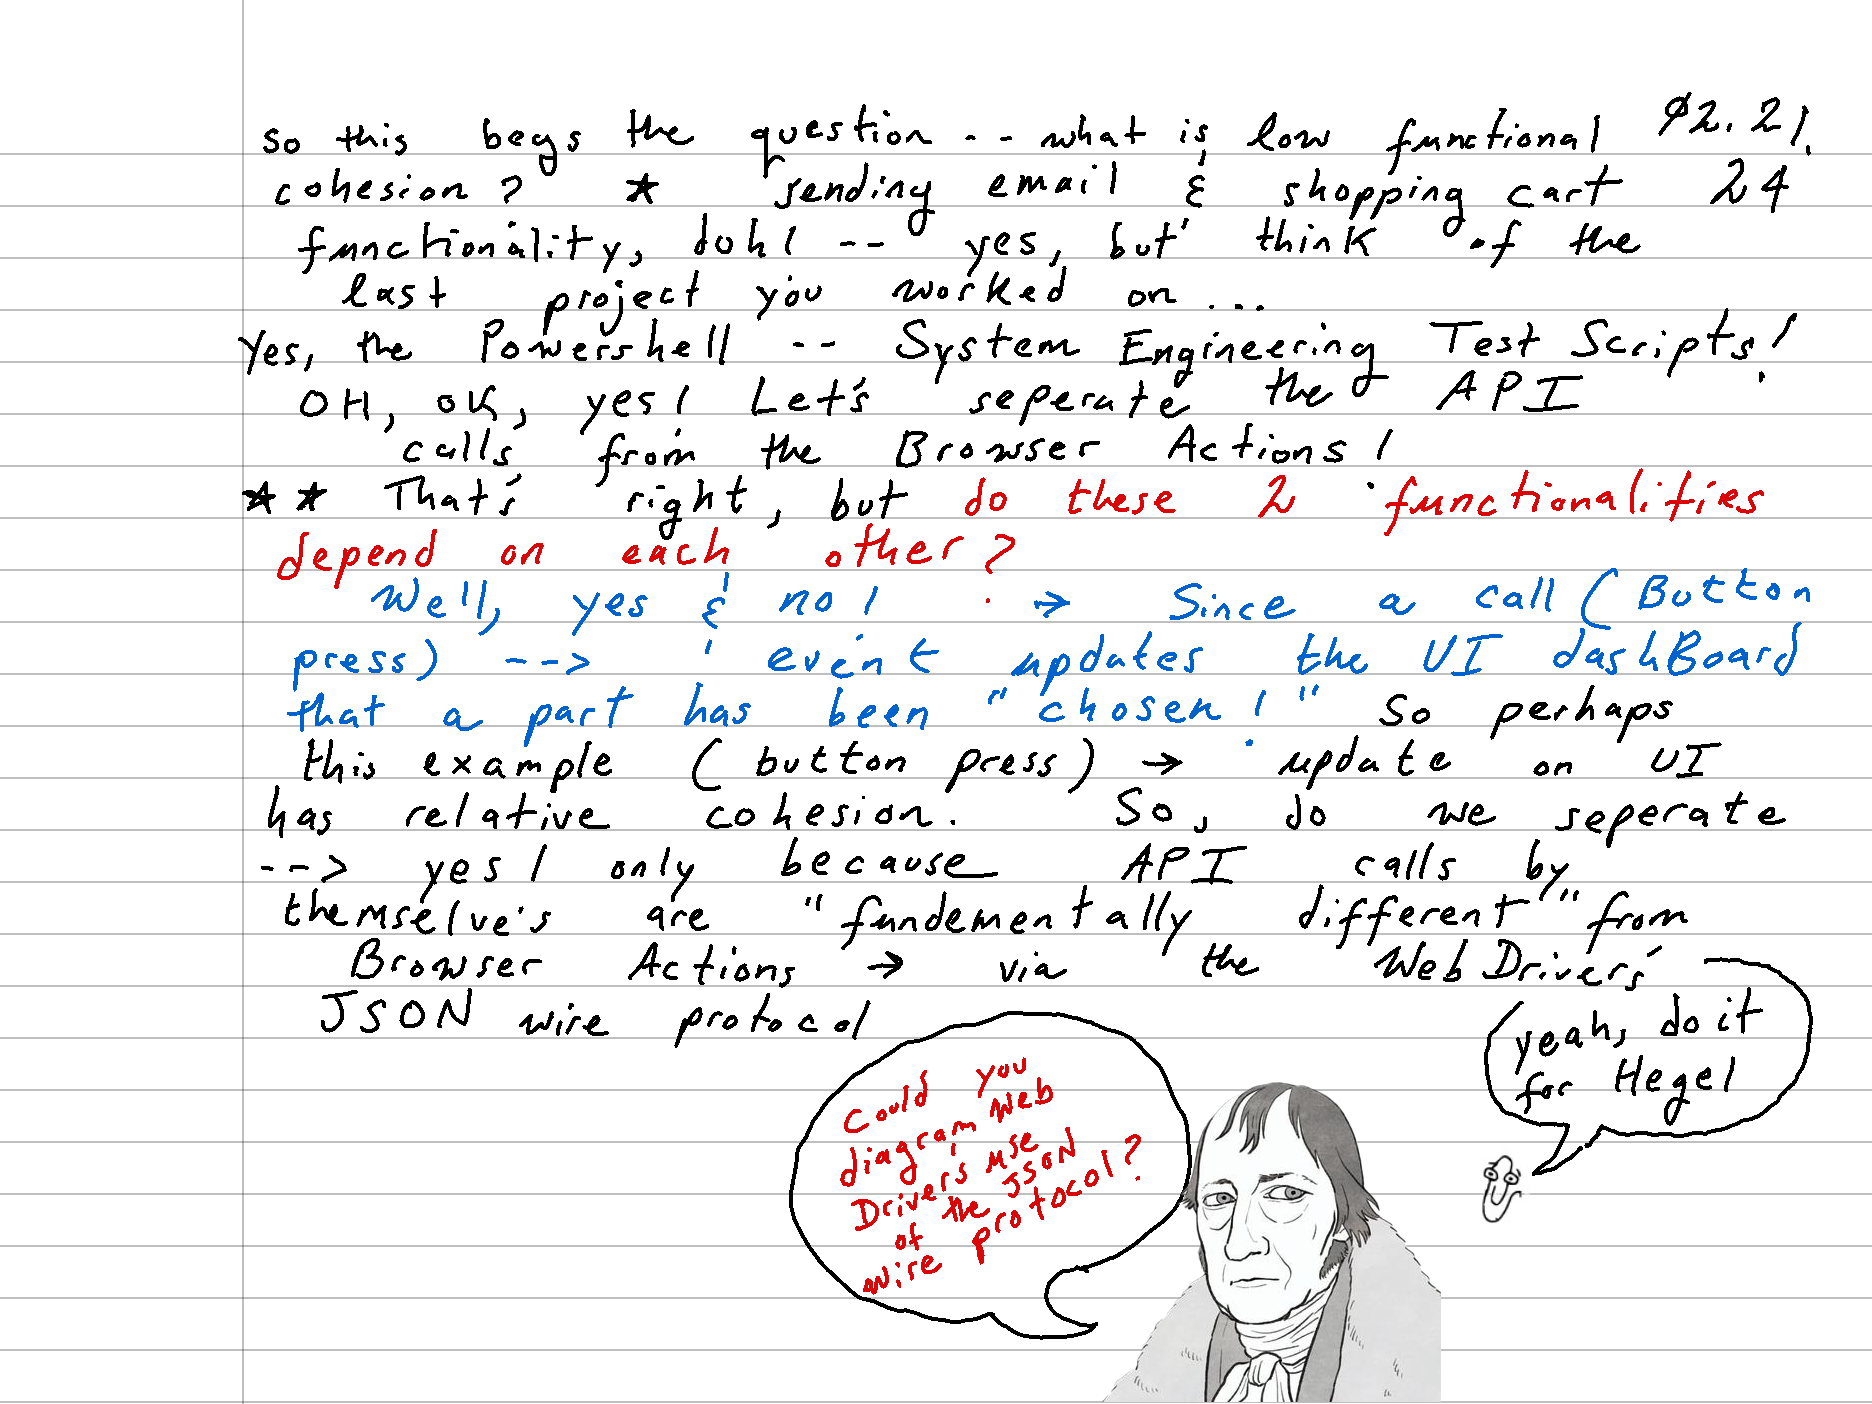 so this begs the question -- what is low functional
cohesion? * sending email & shopping cart
functionality, doh! -- yes, but think of the
last project you worked on...
Yes, the Powershell -- System Engineering Test Scripts!
OH, OK, yes! Let's seperate the API
calls from the Browser Actions!
** That's right, but do these 2 functionalities
depend on each other?
Well, yes & no! → Since a call (Button
press) --> event updates the UI dashBoard
that a part has been "chosen!" So perhaps
this example (button press) → update on UI
has relative cohesion. So, do we seperate
--> yes! only because API calls by
themselve's are "fundementally different" from
Browser Actions → via the WebDriver's
JSON wire protocol
2.21.
24
Could you
diagram Web
Driver's use
of the JSON
wire protocol?
yeah, do it
for Hegel